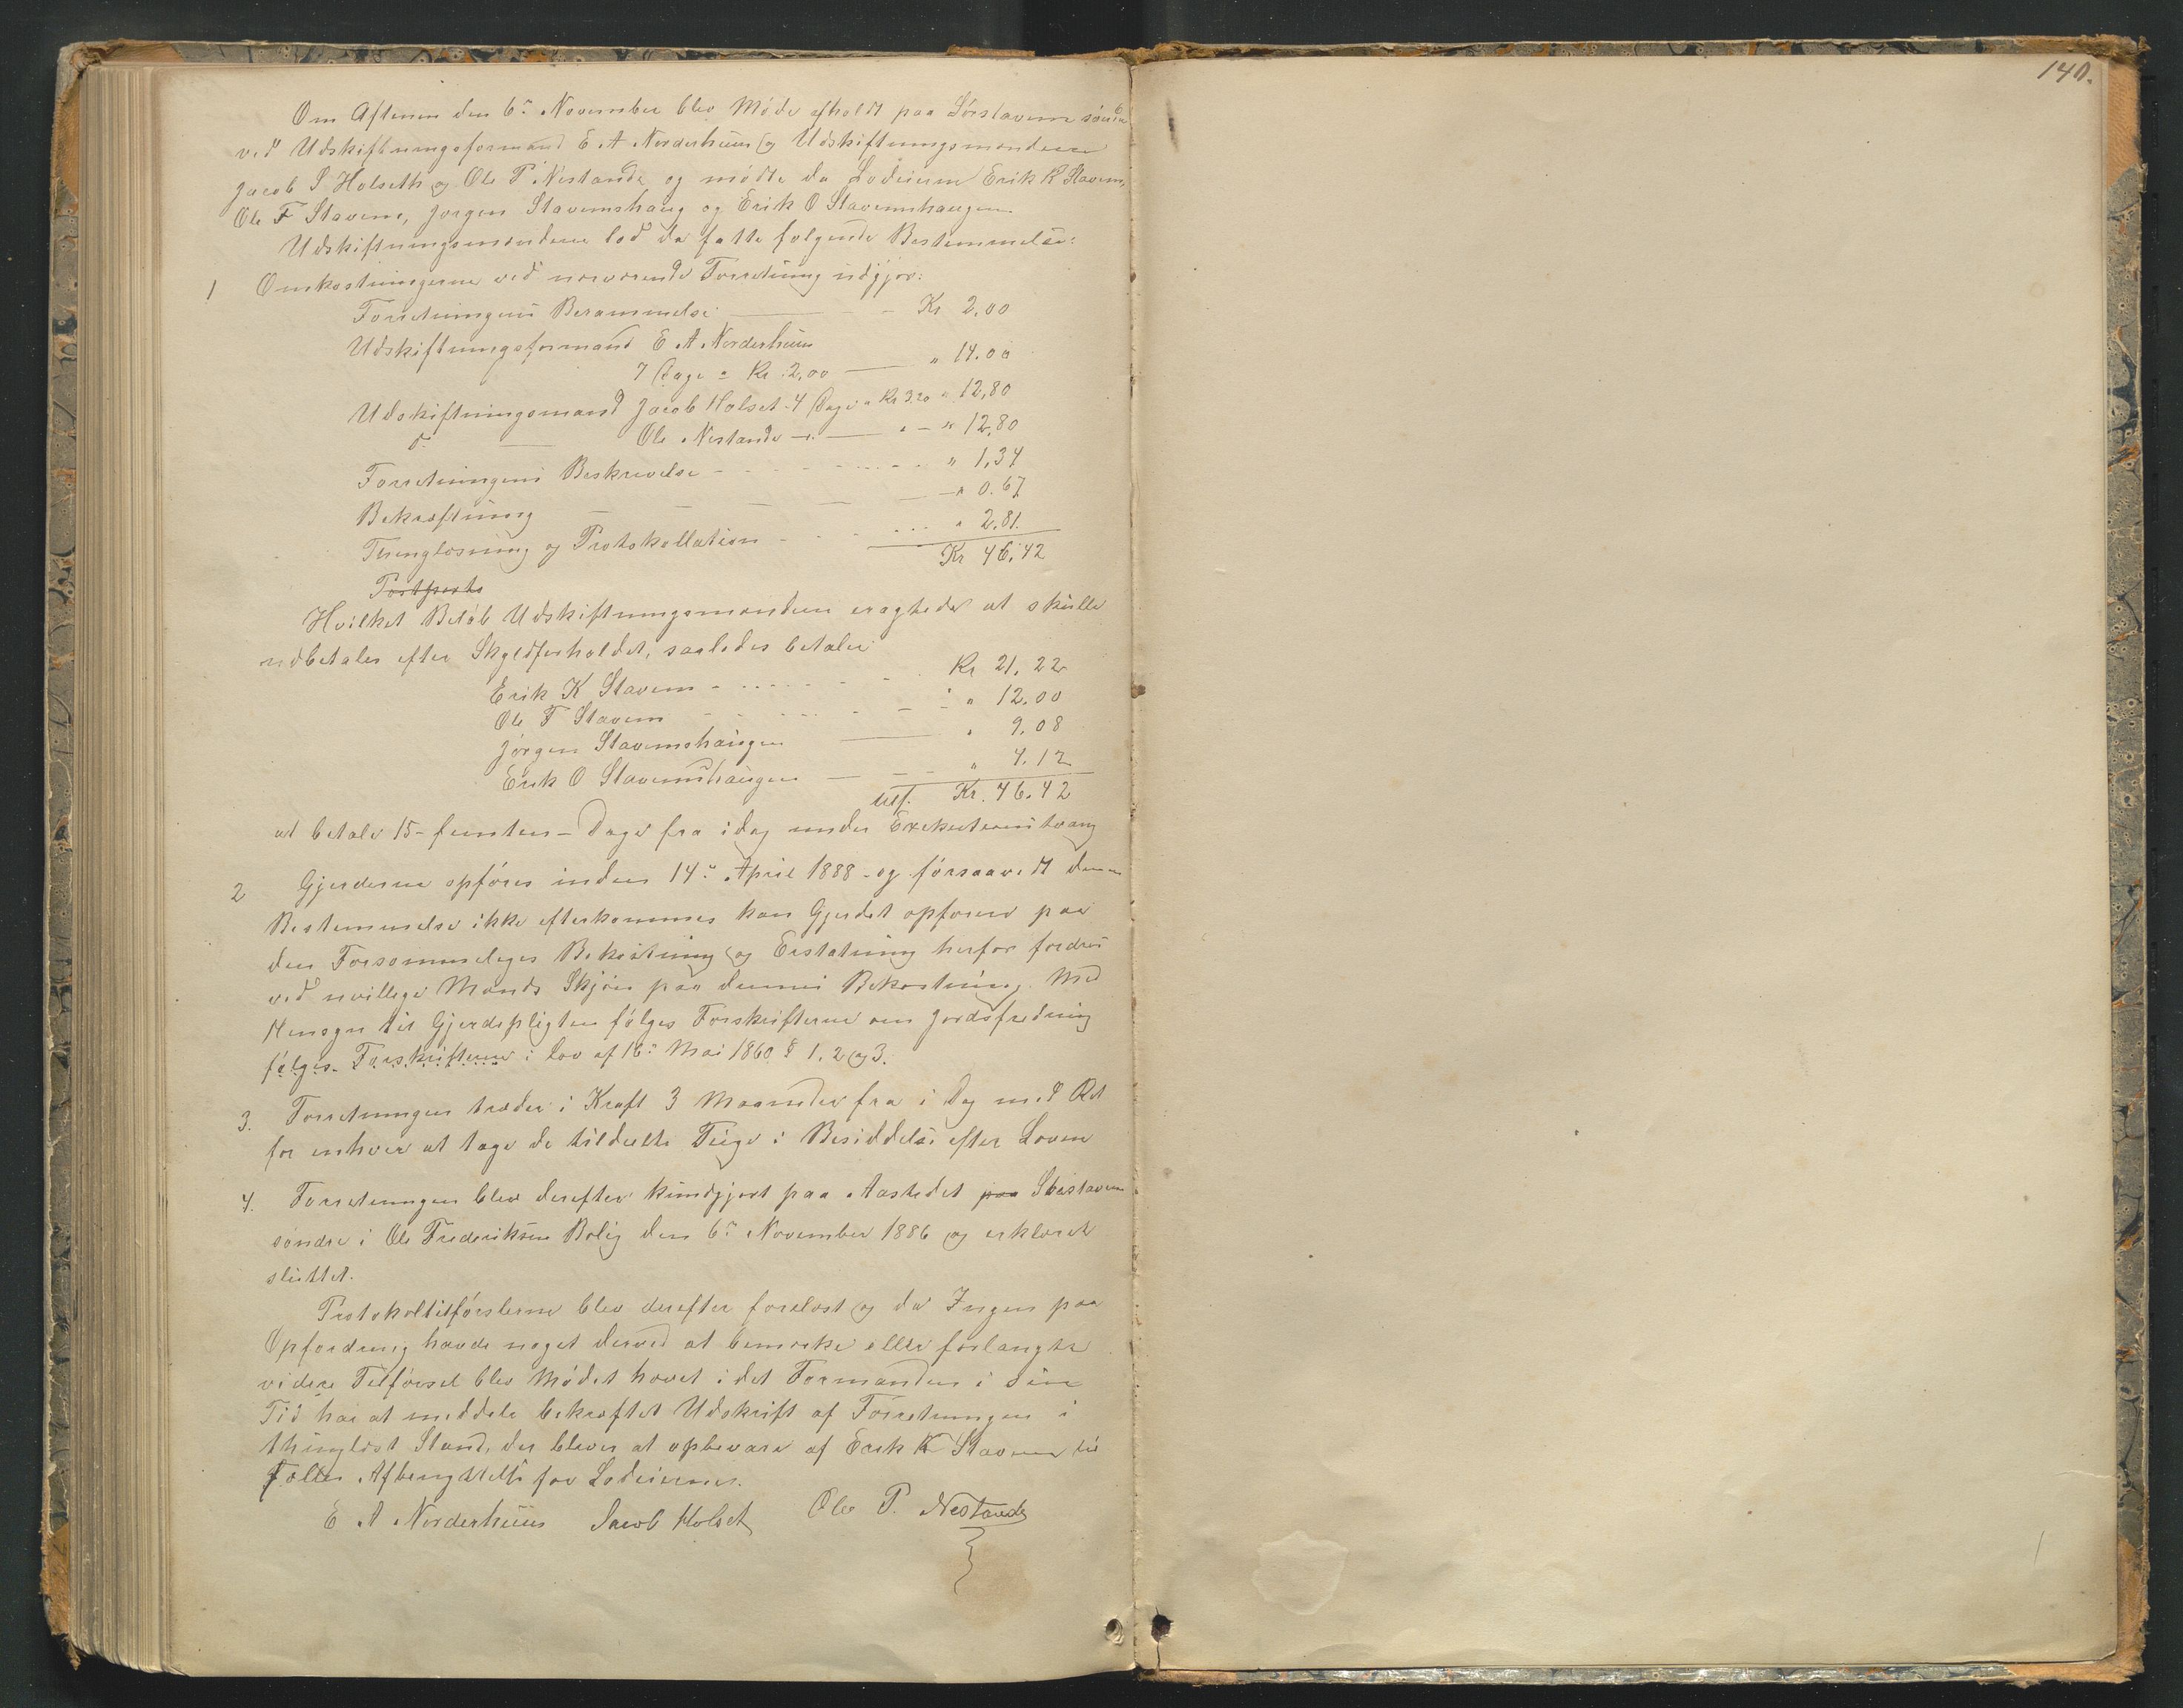 140.
Om Aftenen den 6te November blev Møde afholdt paa Sørstavem søndre
ved Udskiftningsformand E A Norderhuus og Udskiftningsmændene
Jacob S Holseth og Ole P Nestande og mødte da Lodeierne Erik K Stavem,
Ole F Stavem, Jørgen Stavemshaug og Erik O Stavemshaugen
Udskiftningsmændene lod da fatte følgende Bestemmelse:
1 Omkostningerne ved nærværende Forretning udgjør:
Forretningens Berammelse — Kr 2,00
Udskiftningsformand E A Norderhuus
7 Dage a Kr. 2,00 — " 14.00
Udskiftningsmand Jacob Holset 4 Dage a Kr 3.20 " 12,80
do — Ole Nestande — " — " 12,80
Forretningens Beskrivelse - - - " 1,34
Bekræftning — — — " 0.67
Thinglæsning og Protokollation - - - " 2.81.
Kr 46.42
Postporto
Hvilket Beløb Udskiftningsmændene eragtede at skulle
udbetales efter Skyldforholdet, saaledes betaler
Erik K Stavem - - - Kr 21.22
Ole F Stavem - - - " 12.00
Jørgen Stavemshaugen — " 9,08
Erik O Stavemshaugen — " 4.12
tils. Kr. 46.42
at betale 15 - femten - Dage fra idag under Exekutionstvang
2 Gjerderne opføres inden 14de April 1888 - og forsaavidt denne
Bestemmelse ikke efterkommes kan Gjerdet opføres paa
den Forsømmeliges Bekostning og Erstatning herfor fordres
ved uvillige Mænds Skjøn paa dennes Bekostning. Med
Hensyn til Gjerdepligten følges Forskrifterne om Jordsfredning
følges Forskrifterne i Lov af 16de Mai 1860 § 1, 2 og 3.
3. Forretningen træder i Kraft 3 Maaneder fra i Dag med Ret
for enhver at tage de tildelte Teige i Besiddelse efter Loven
4. Forretningen blev derefter kundgjort paa Aastedet paa Sørstavem
søndre i Ole Frederiksens Bolig den 6te November 1886 og erklæret
sluttet.
Protokoltilførslerne blev derefter forelæst og da Ingen paa
Opfordring havde noget derved at bemærke eller forlangte
videre Tilførsel blev Mødet hævet i det Formanden i sin
Tid har at meddele bekræftet Udskrift af Forretningen i
thinglæst Stand, der bliver at opbevare af Erik K Stavem til
fælles Afbenyttelse for Lodeierne.
E A Norderhuus Jacob Holset Ole P. Nestande